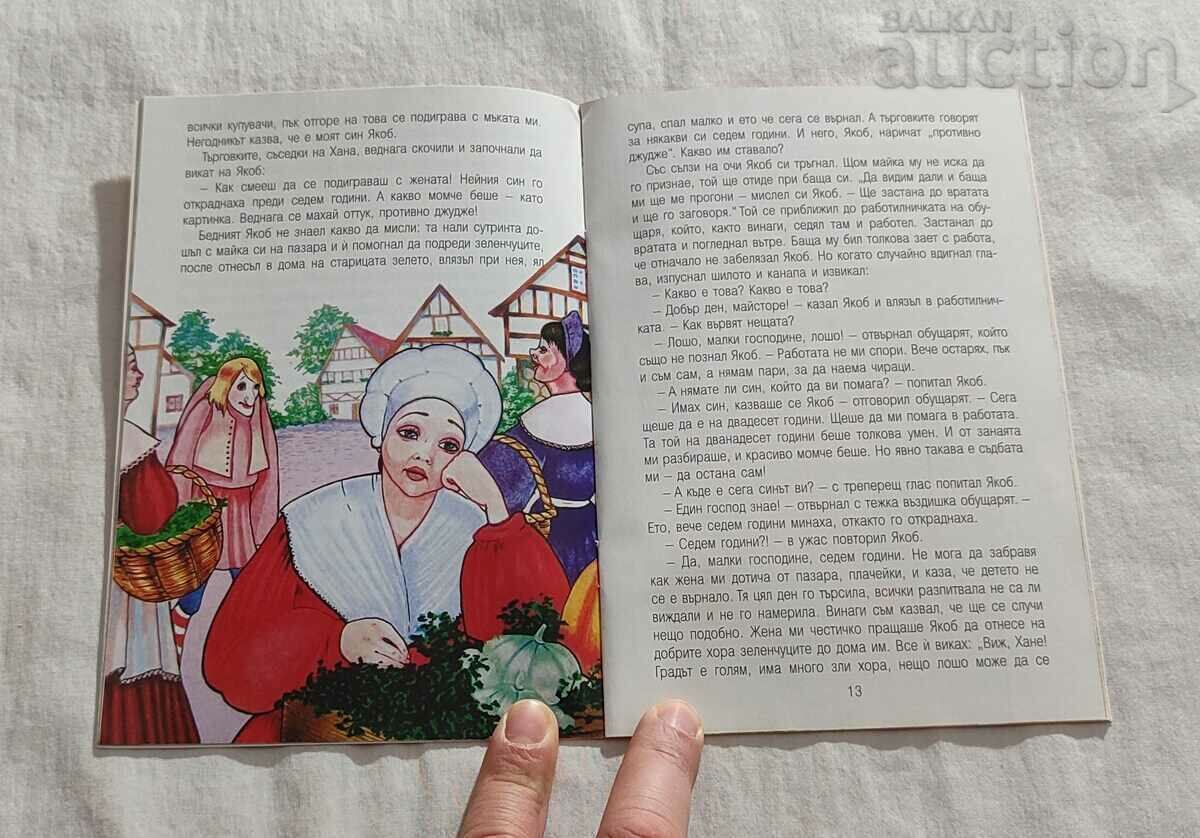 BALKAN
auction
всички купувачи, пък отгоре на това се подиграва с мъката ми.
Негодникът казва, че е моят син Якоб.
Търговките, съседки на Хана, веднага скочили и започнали да
викат на Якоб:
– Как смееш да се подиграваш с жената! Нейния син го
откраднаха преди седем години. А какво момче беше – като
картинка. Веднага се махай оттук, противно джудже!
Бедният Якоб не знаел какво да мисли: та нали сутринта до-
шъл с майка си на пазара и ѝ помогнал да подреди зеленчуците,
после отнесъл в дома на старицата зелето, влязъл при нея, ял
супа, спал малко и ето че сега се върнал. А търговките говорят
за някакви си седем години. И него, Якоб, наричат „противно
джудже“. Какво им ставало?
Със сълзи на очи Якоб си тръгнал. Щом майка му не иска да
го признае, той ще отиде при баща си. „Да видим дали и баща
ми ще ме прогони – мислел си Якоб. – Ще застана до вратата
и ще го заговоря.“ Той се приближил до работилничката на обу-
щаря, който, както винаги, седял там и работел. Застанал до
вратата и погледнал вътре. Баща му бил толкова зает с работа,
че отначало не забелязал Якоб. Но когато случайно вдигнал гла-
ва, изпуснал шилото и канапа и извикал:
– Какво е това? Какво е това?
– Добър ден, майсторе! – казал Якоб и влязъл в работилнич-
ката. – Как вървят нещата?
– Лошо, малки господине, лошо! – отвърнал обущарят, който
също не познал Якоб. – Работата не ми спори. Вече остарях, пък
и съм сам, а нямам пари, за да наема чираци.
– А нямате ли син, който да ви помага? – попитал Якоб.
– Имах син, казваше се Якоб – отговорил обущарят. – Сега
щеше да е на двадесет години. Щеше да ми помага в работата.
Та той на дванадесет години беше толкова умен. И от занаята
ми разбираше, и красиво момче беше. Но явно такава е съдбата
ми – да остана сам!
– А къде е сега синът ви? – с треперещ глас попитал Якоб.
– Един господ знае! – отвърнал с тежка въздишка обущарят. –
Ето, вече седем години минаха, откакто го откраднаха.
– Седем години?! – в ужас повторил Якоб.
– Да, малки господине, седем години. Не мога да забравя
как жена ми дотича от пазара, плачейки, и каза, че детето не
се е върнало. Тя цял ден го търсила, всички разпитвала не са ли
виждали и не го намерила. Винаги съм казвал, че ще се случи
нещо подобно. Жена ми честичко пращаше Якоб да отнесе на
добрите хора зеленчуците до дома им. Все ѝ виках: „Виж, Хане!
Градът е голям, има много зли хора, нещо лошо може да се
13